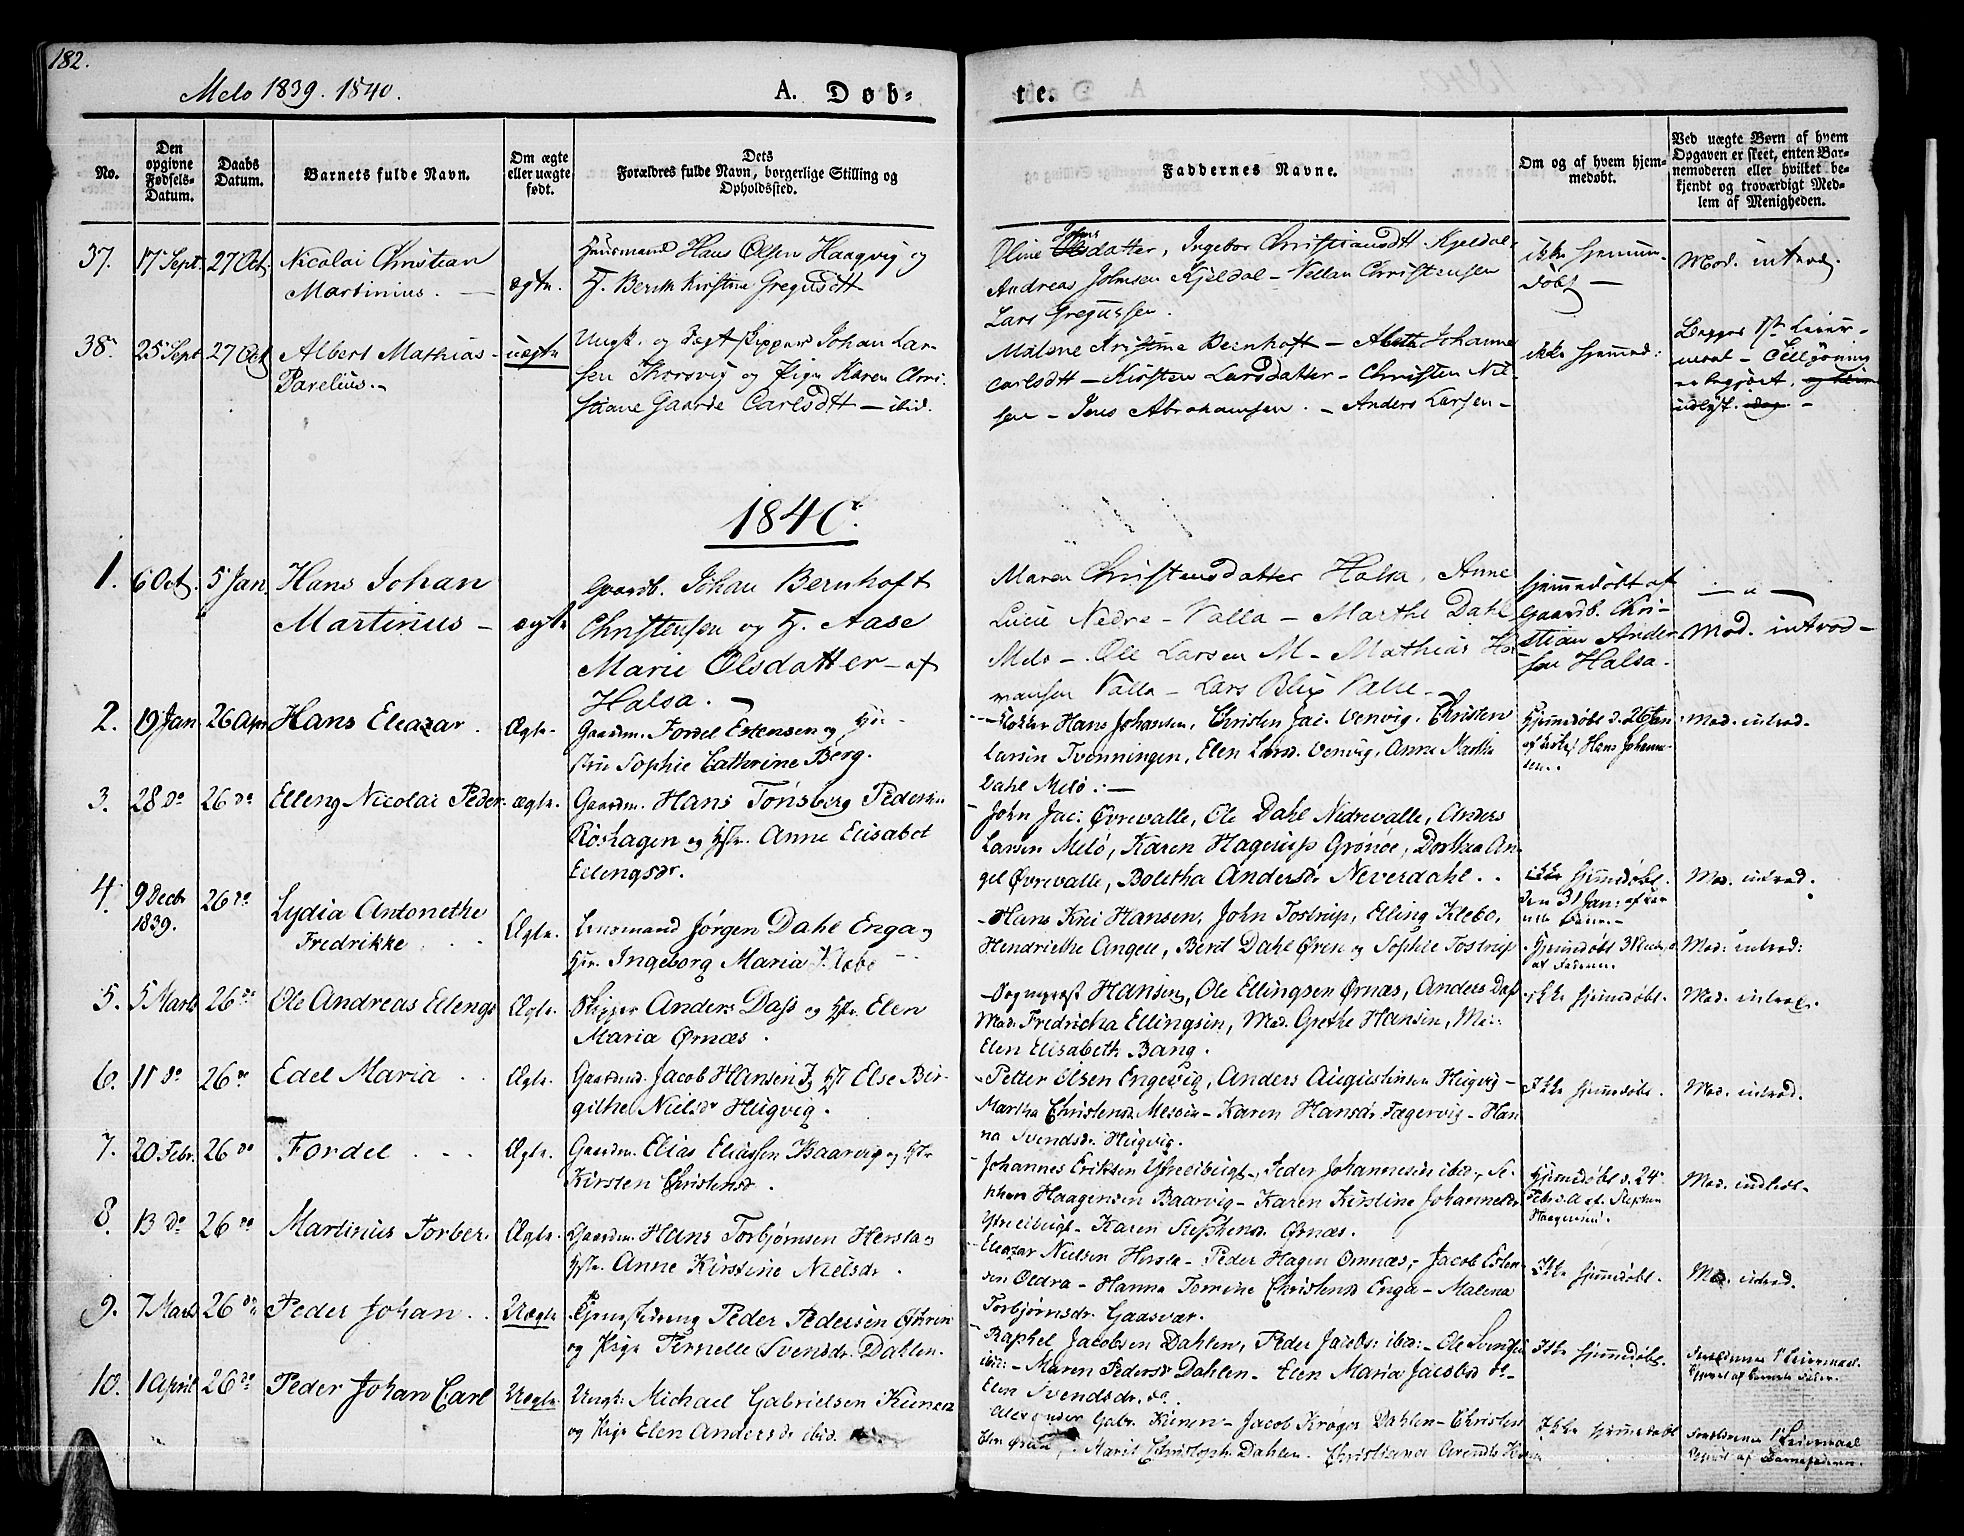 182.
Melo 1839. 1840.
A. Døb-
te.
No.
Den opgivne Fødsels-Datum.
Daabs Datum.
Barnets fulde Navn.
Om ægte eller uægte født.
Dets Forældres fulde Navn, borgerlige Stilling og Opholdssted.
Faddernes Navne.
Om og af hvem hjemmedøbt.
Ved uægte Børn af hvem Opgaven er skeet, enten Barnemoderen eller hvilket bekjendt og troværdigt Medlem af Menigheden.
37. 17 Sept. 27 Oct. Nicolai Christian
Martinius. —
ægte.
Huusmand Hans Olsen Haagvig og
H. Berith Kirstine Gregusdtt
Oline Johnsdatter, Ingebor Christiansdtt Kjeldal-
Andreas Johnsen Kjeldal - Christensen
Lars Gregussen.
ikke hjemme-
døbt —
Mod. introd.
38. 25 Sept 27 Oct Albert Mathias
Parelius. -
uægte
Ungk. og Johan Lar-
sen Thorsvig og Pige Karen Chri-
stiane Gaarde Carlsdtt — ibid.
Malene Kristine Bernhoft — Johanne
Carlsdtt — Kirsten Larsdatter — Christen Niel-
sen — Jens Abrahamsen. — Anders Larsen -
ikke hjemmed:
Begges 1st Leier-
maal -
1840.
1. 6 Oct. 5 Jan Hans Johan
Martinus —
ægte
Gaardb. Johan Bernhoft
Christensen og H. Aase
Marie Olsdatter — af
Halsa. —
Maren Christensdatter Halsa, Anne
Lucie Nedre-Valla — Marthe Dahl
Melo —. Ole Larsen M — Mathias
Valla — Lars Blix Valle -
hjemmedøbt af
Gaardb. Chri-
stian Ander
sen Halsa.
— " —
Mod. introd —
2. 19 Jan 26 Apr Hans Eleazar.
Ægte.
Gaardm. Fordel Estensen og Hu-
stru Sophie Cathrine Berg.
Klokker Hans Johansen, Christen Jac. Venvig, Christen
Larsen Tvenningen, Elen Larsd. Venvig, Anne Martha
Dahl Melø. —
Hjemmedøbt d. 26 Jan
af Hans Johan-
sen.
Mod. introd.
3. 28 do 26 do Elleng Nicolai Peder.
ægte.
Gaardm. Hans Tønsberg Pedersen
Røshagen og Hstr. Anne Elisabet
Ellengsdr.
John Jac. Øvrevalle, Ole Dahl Nedrevalle, Anders
Larsen Melö, Karen Hagerups Grønøe, Dorthea An-
gel Øvrevalle, Boletha Andersdr Neverdahl.
ikke hjemdøbt.
Mod. introd.
4. 9 Decbr 1839. 26 do Lydia Antonethe
Fredrikke
Ægte.
Lensmand Jørgen Dahl Enga og
Hstr. Ingeborg Maria Klæbo
Hans Kni Hansen, John Tostrup, Elling Klebo,
Henriethe Angell, Berit Dahl Øren og Sophie Tostrup
Mod. introd:
5. 5 Marts 26 do Ole Andreas Ellengs
Ægte.
Skipper Anders Dass og Hstr. Elen
Maria Ørnæs.
Sognepræst Hansen, Ole Ellingsen Ørnæs, Anders Dass
Mad. Fredricha Ellingsen, Mad. Grethe Hansen, M
Elen Elisabeth Bang.
ikke hjemdøbt.
Mod. introd.
6. 11 do 26 do Edel Maria
Ægte.
Gaardmd. Jacob Hansen Hstr Else Bir-
githe Nielsdr Hugvig.
Petter Olsen Engevig, Anders Augustinsen Hugvig —
Martha Christensd. Mesøen — Karen Hansdr. Fagervig — Han-
na Svendsdr. Hugvig.
Ikke hjemmedøbt.
Mod. introd.
7. 20 Febr. 26 do Fordel
Ægte.
Gaardm. Elias Eliassen Baarvig og Hstr
Kirsten Christensd.
Johannes Eriksen Ytreibugt, Peder Johannesen ibid, Ste-
phen Haagensen Baarvig — Karen Kirstine Johannesdr
Ytreibugt — Karen Stephensd. Ørnæs.
Hjemdøbt d. 24
Febr. af Stephen
Haagensen.
Mod. indledt.
8. 13 do 26 do Martinus Torber.
Ægte.
Gaardm. Hans Torbjørnsen Hersla og
Hstr. Anne Kirstine Nielsdr.
Eleazar Nielsen Hersla — Peder Hagen Ørnnæs, — Jacob Esten-
sen Oldra — Hanna Tomine Christensd Enga — Malena
Torbjørnsdr. Gaasvær.
Ikke hjemdøbt.
Mod. introd.
9. 7 Marts 26 do Peder Johan
Uægte.
Peder Pedersen
og Pige Pernelle Svensdr. Dahlen.
Raphel Jacobsen Dahlen, Peder Jacobs: ibid: — Ole Svendsen
ibid: — Maren Pedersdr Dahlen — Elen Maria Jacobsd do
Elen Svendsdr. do.
Ikke hjemmdøbt.
Forældrenes 1ste Leiermaal.
10. 1 April 26 do Peder Johan Carl
Uægte.
Ungk: Michael Gabrielsen Kunen
og Pige Elen Andersdr ibid.
Alexander Gabr. Kunen — Jacob Krøger Dahlen — Christen
Øren, Marit Christoph: Dahlen. Christiana Arendts
Ikke hjemmedøbt
Forældrenes 1ste Leiermaal